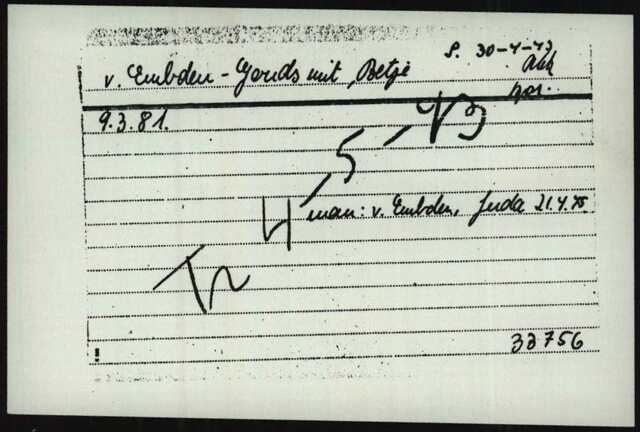 S. 30-4-43
v. Embden-Goudsmit, Betje
9.3.81.
Tr 4-5-43
man: v. Embden, Juda 21.4.75.
33756